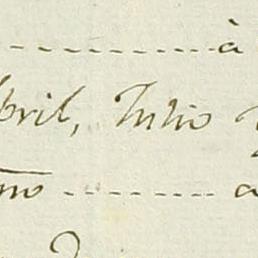 à
bril, Julio y
mo a